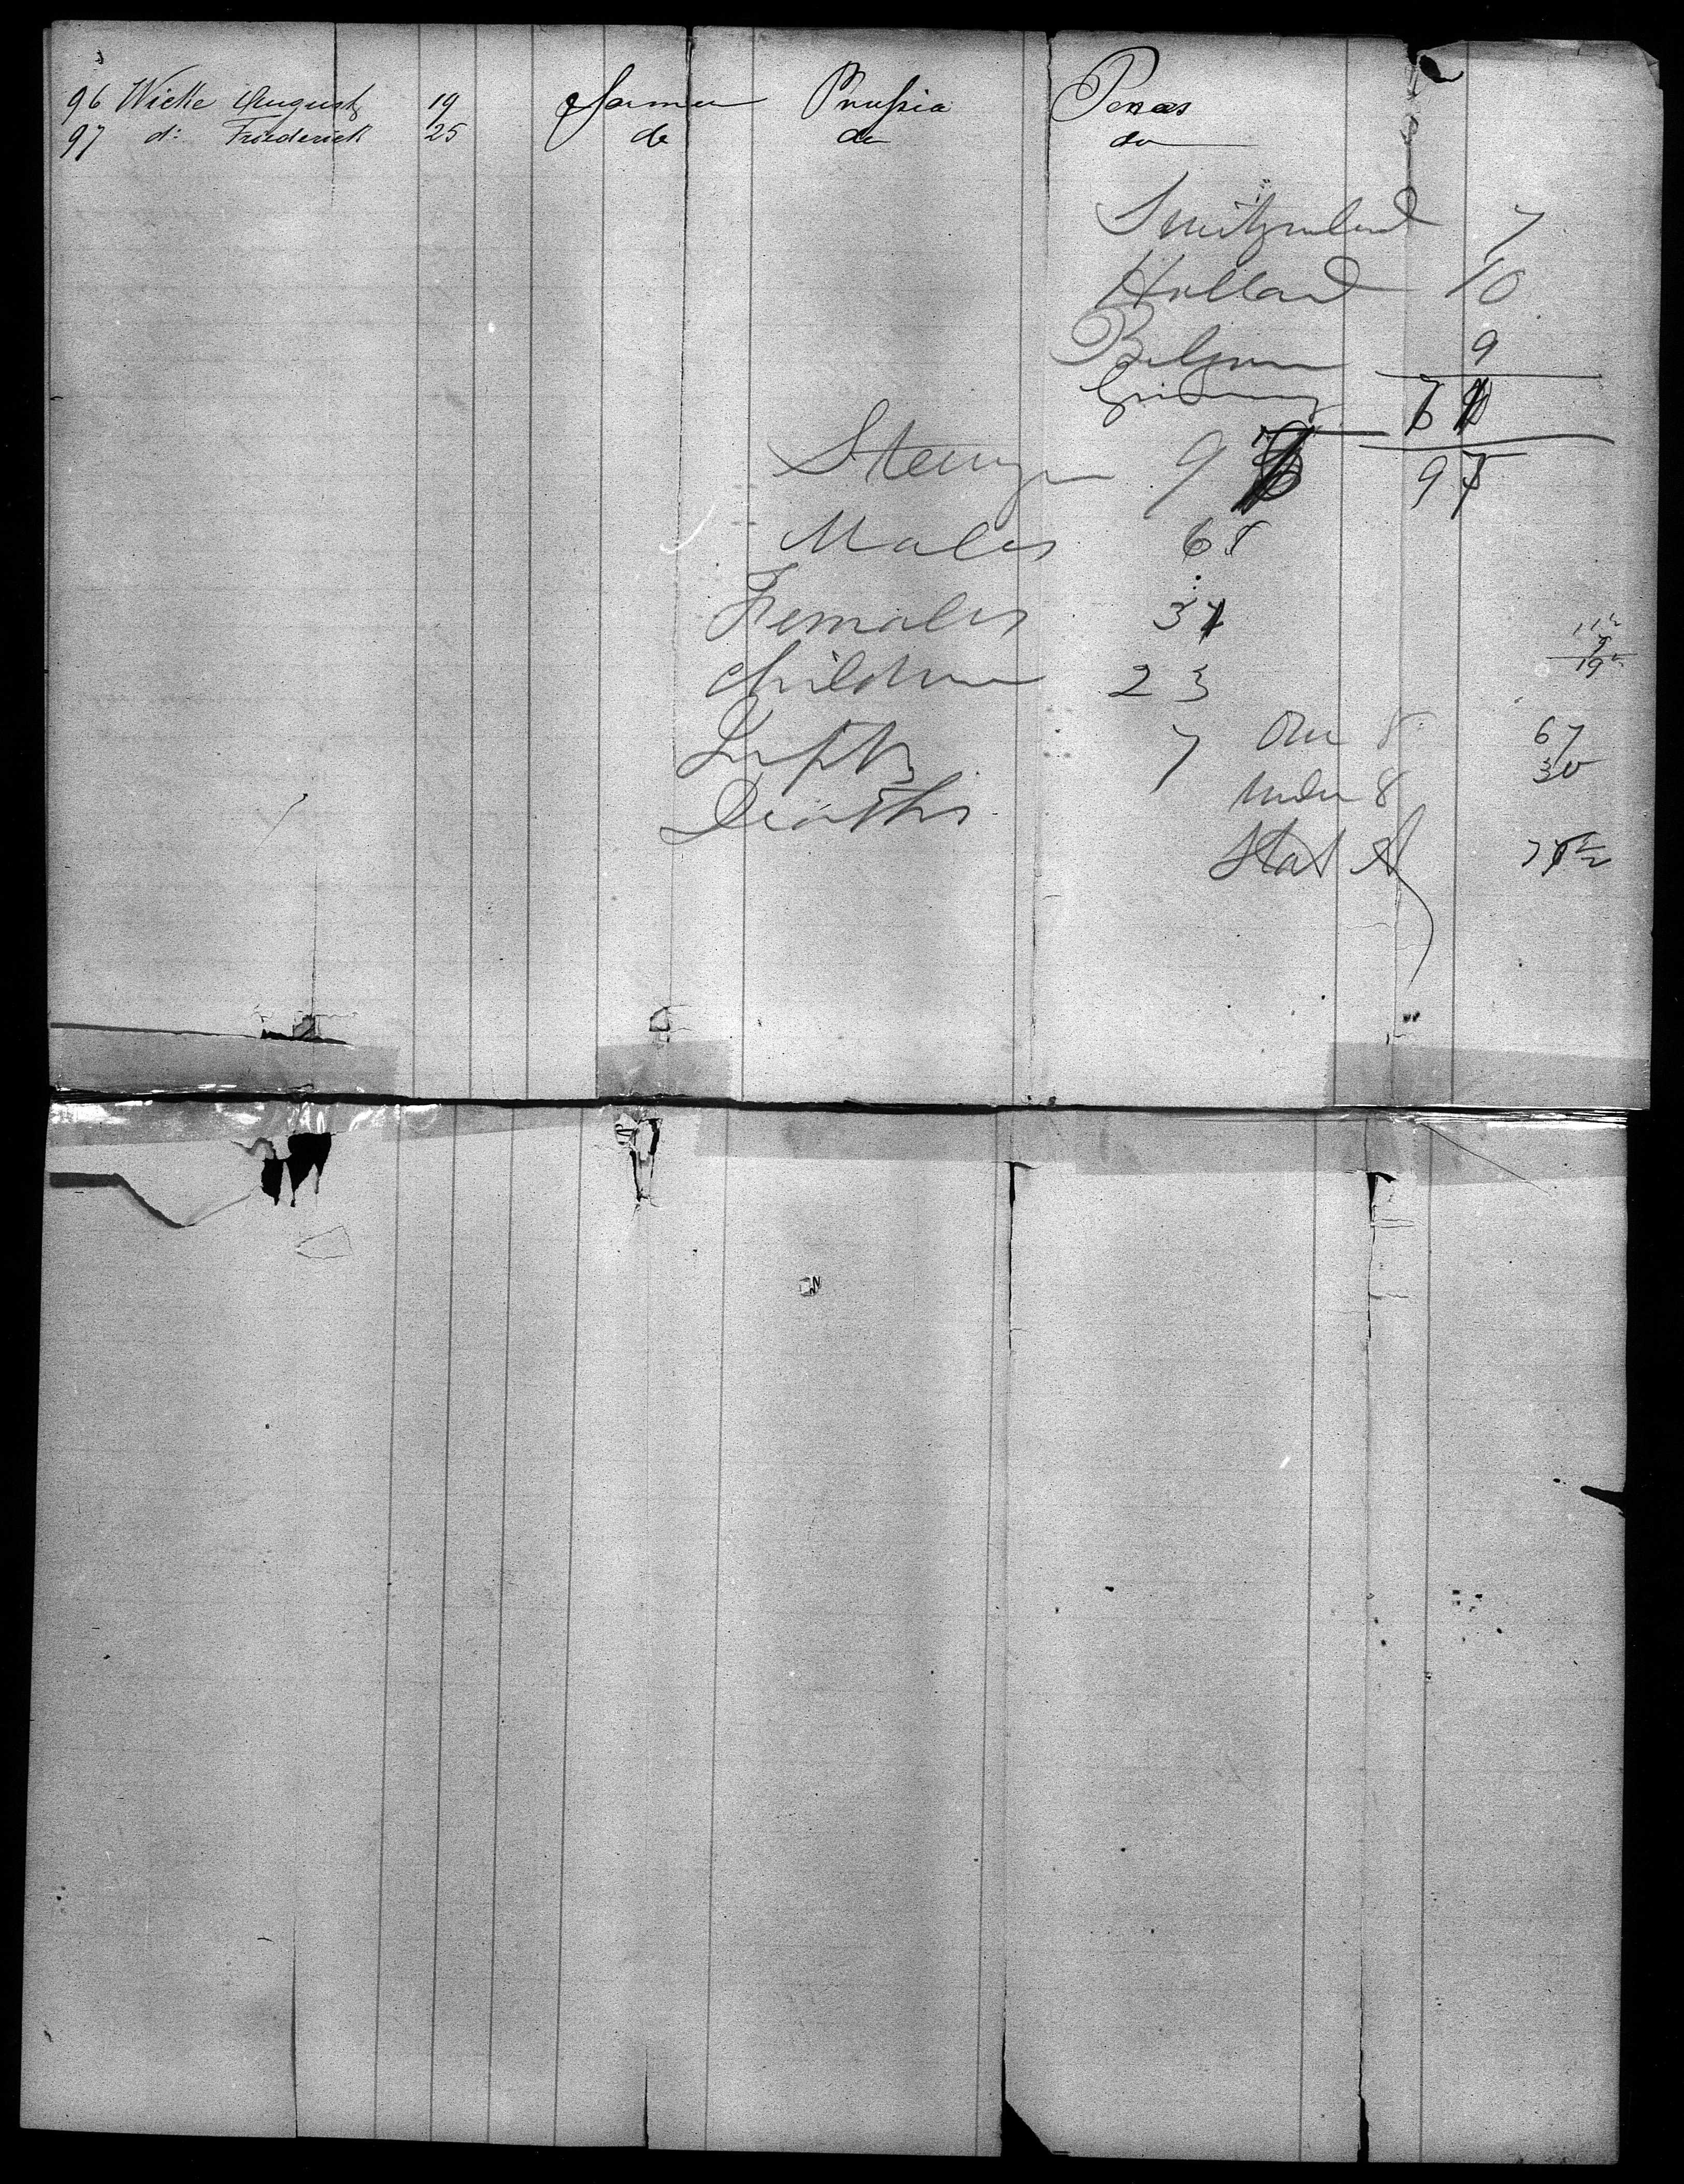 96 Wicke August 19 Farmer Prussia Texas
97 do Friederick 25 do do do
Switzerland 7
Holland 10
Belgium 9
Germany 71
97
Steerage 97
Males 68
Females 31
Children 23
Infts 7
Over 8 67
Under 8 30
Deaths
Stat